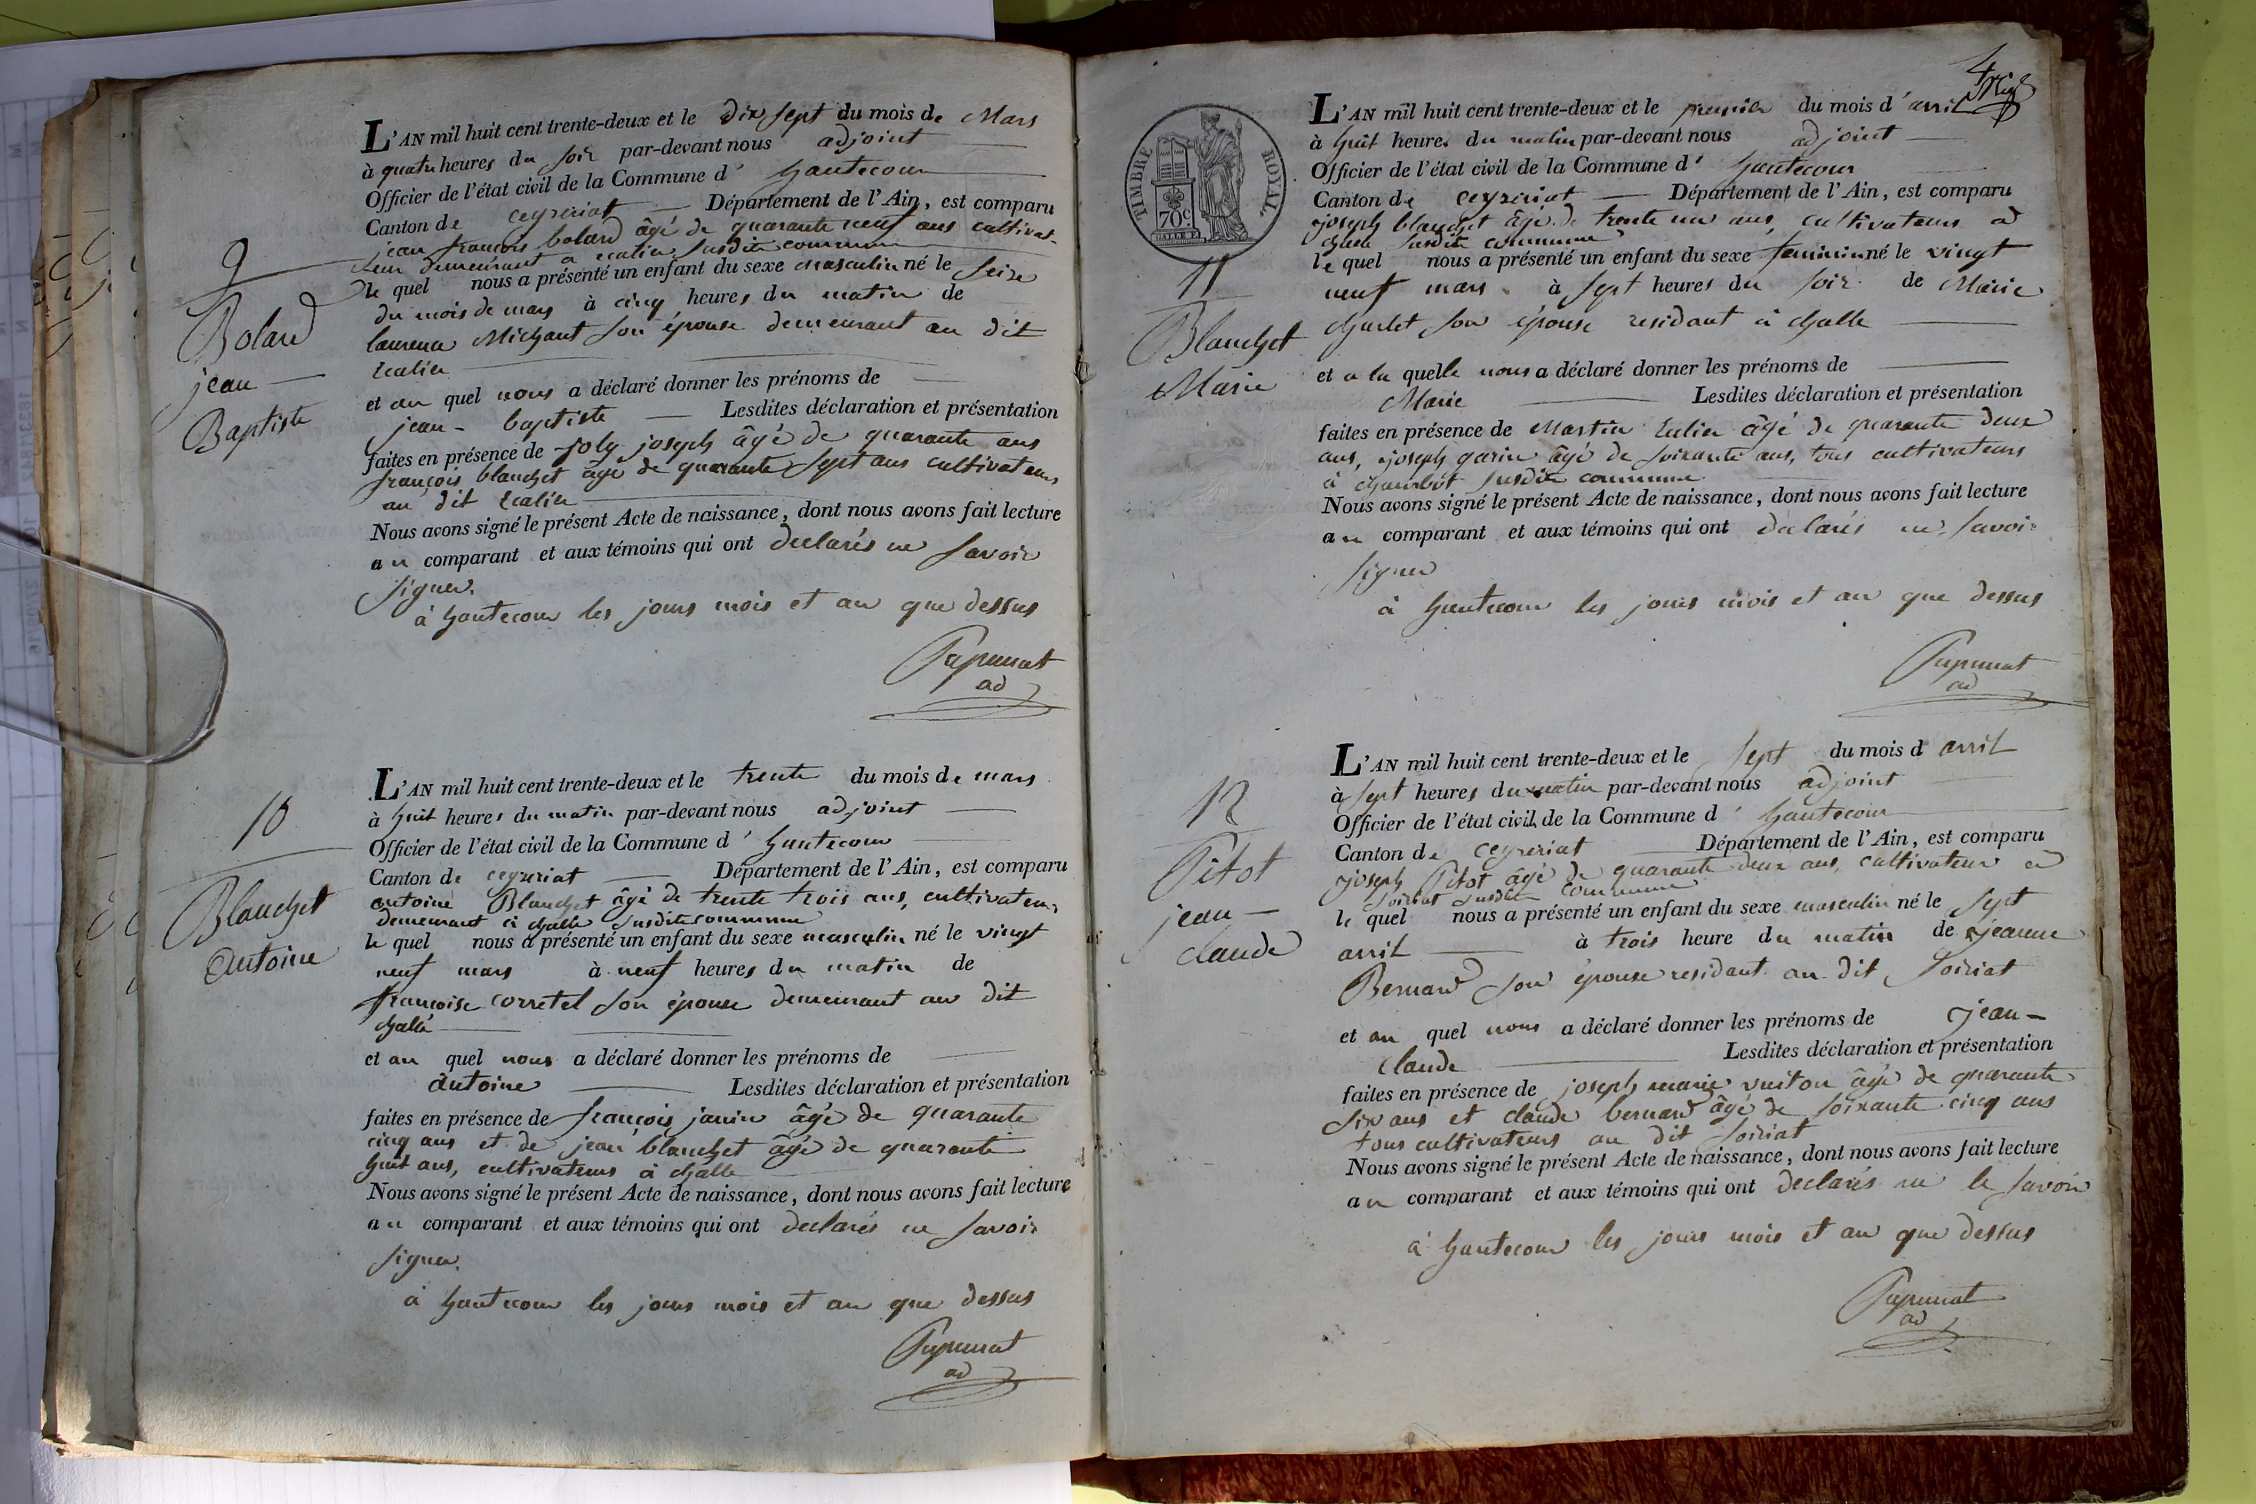 9
Bolard
jean
Baptiste
L'AN mil huit cent trente-deux et le dix sept du mois de Mars
à quatre heures du soir par-devant nous adjoint
Officier de l'état civil de la Commune d' hautecour
Canton de ceyzeriat Département de l'Ain, est comparu
jean françois bolard âgé de quarante neuf ans cultivat-
eur demeurant a susdite commune
le quel nous a présenté un enfant du sexe masculin né le seize
du mois de mars à cinq heures du matin de
laurence Michaut son épouse demeurant au dit
et au quel nous a déclaré donner les prénoms de
jean - baptiste Lesdites déclaration et présentation
faites en présence de joly joseph âgé de quarante ans
françois blanchet âgé de quarante sept ans cultivateurs
au dit
Nous avons signé le présent Acte de naissance, dont nous avons fait lecture
au comparant et aux témoins qui ont declarés ne savoir
signer.
à hautecour les jours mois et an que dessus
ad
10
Blanchet
Antoine
L'AN mil huit cent trente-deux et le trente du mois de mars
à huit heures du matin par-devant nous adjoint
Officier de l'état civil de la Commune d' hautecour
Canton de ceyzeriat Département de l'Ain, est comparu
antoine Blanchet âgé de trente trois ans, cultivateur
demeurant à challe susdite commune
le quel nous a présenté un enfant du sexe masculin né le vingt
neuf mars à neuf heures du matin de
françoise corretel son épouse demeurant au dit
challe
et au quel nous a déclaré donner les prénoms de
antoine Lesdites déclaration et présentation
faites en présence de françois janin âgé de quarante
cinq ans et de jean blanchet âgé de quarante
huit ans, cultivateurs à challe
Nous avons signé le présent Acte de naissance, dont nous avons fait lecture
au comparant et aux témoins qui ont declarés ne savoir
signer.
à hautecour les jours mois et an que dessus
ad
TIMBRE ROYAL
70c
11
Blanchet
Marie
L'AN mil huit cent trente-deux et le premier du mois d'avril
à huit heures du matin par-devant nous adjoint
Officier de l'état civil de la Commune d' hautecour
Canton de ceyzeriat Département de l'Ain, est comparu
joseph blanchet âgé de trente un ans, cultivateur à
challe susdite commune
le quel nous a présenté un enfant du sexe feminin né le vingt
neuf mars à sept heures du soir de Marie
charlet son épouse residant à challe
et a la quelle nous a déclaré donner les prénoms de
Marie Lesdites déclaration et présentation
faites en présence de Martin âgé de quarante deux
ans, joseph garin âgé de soixante ans, tous cultivateurs
à susdite commune
Nous avons signé le présent Acte de naissance, dont nous avons fait lecture
au comparant et aux témoins qui ont declarés ne savoir
signer
à hautecour les jours mois et an que dessus
ad
12
Pitot
jean -
claude
L'AN mil huit cent trente-deux et le sept du mois d avril
à sept heures du matin par-devant nous adjoint
Officier de l'état civil de la Commune d' hautecour
Canton de ceyzeriat Département de l'Ain, est comparu
joseph Pitot âgé de quarante deux ans, cultivateur à
soiriat susdite commune
le quel nous a présenté un enfant du sexe masculin né le sept
avril à trois heure du matin de jeanne
Bernard son épouse residant au dit soiriat
et au quel nous a déclaré donner les prénoms de jean -
claude Lesdites déclaration et présentation
faites en présence de joseph marie vuiton âgé de quarante
six ans et claude bernard âgé de soixante cinq ans
tous cultivateurs au dit soiriat
Nous avons signé le présent Acte de naissance, dont nous avons fait lecture
au comparant et aux témoins qui ont declarés ne le savoir
à hautecour les jours mois et an que dessus
ad